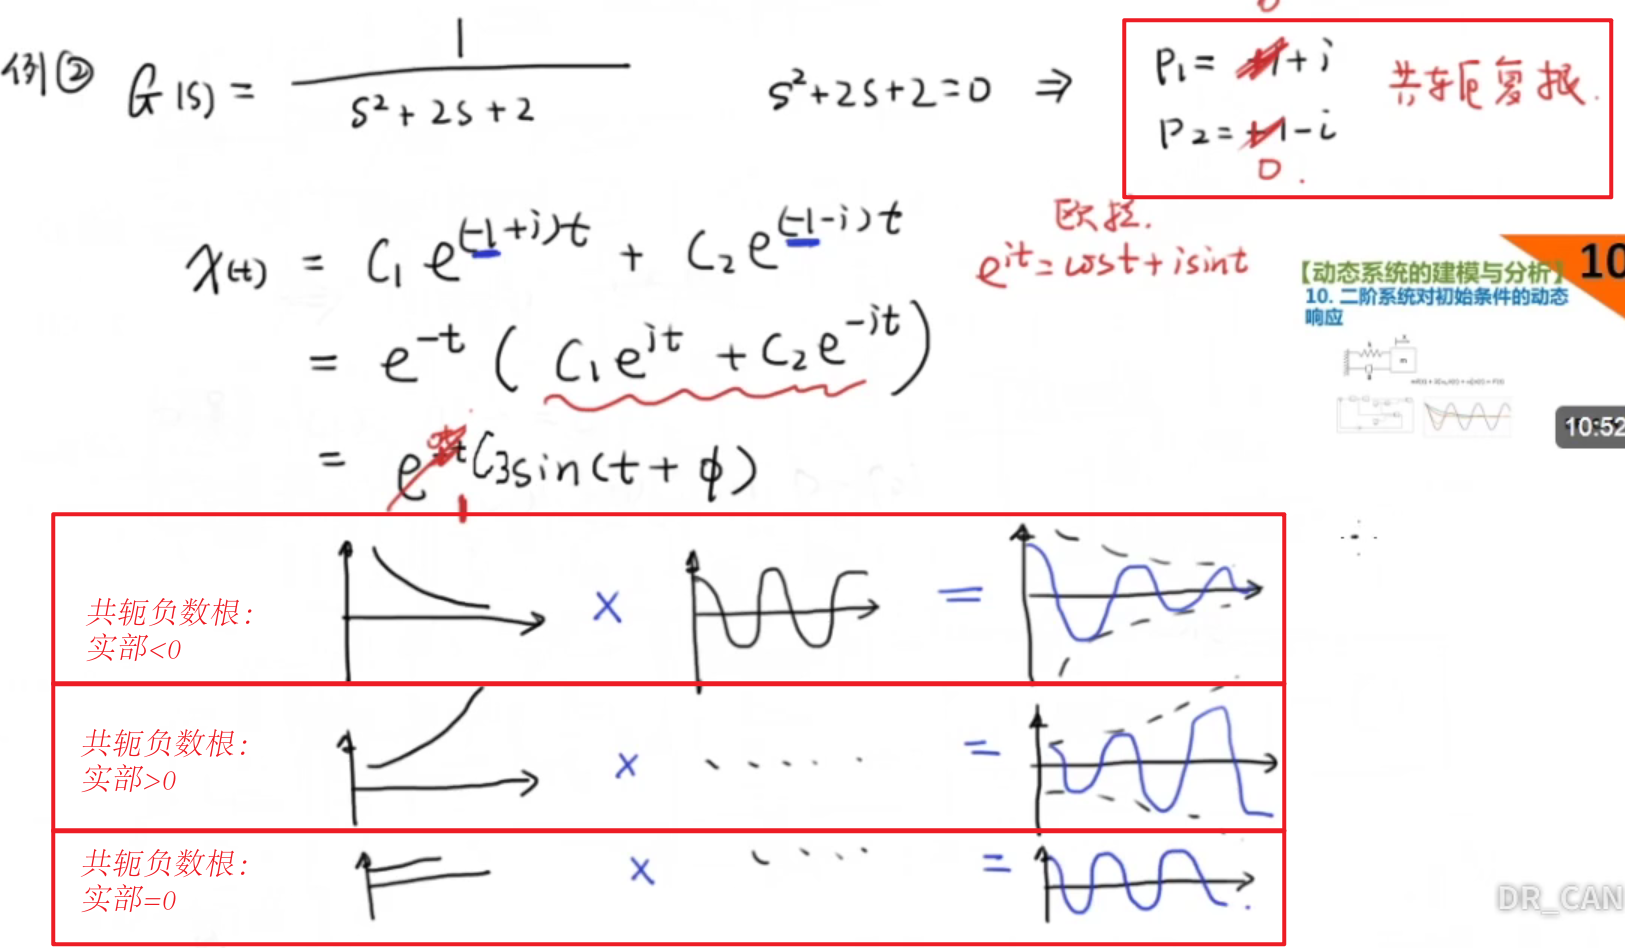 例② G(s) = 1 / s²+2s+2
s²+2s+2=0 ⇒
P₁= +i
P₂= -i
0.
共轭复根.
x(t) = C₁e^(-1+i)t + C₂e^(-1-i)t
欧拉.
e^it = cost + isint
= e^-t ( C₁e^it + C₂e^-it )
= e C₃sin(t+φ)
1
【动态系统的建模与分析】
10
10. 二阶系统对初始条件的动态
响应
m
10:52
共轭负数根：
实部<0
× =
共轭负数根：
实部>0
× =
共轭负数根：
实部=0
× =
DR_CAN